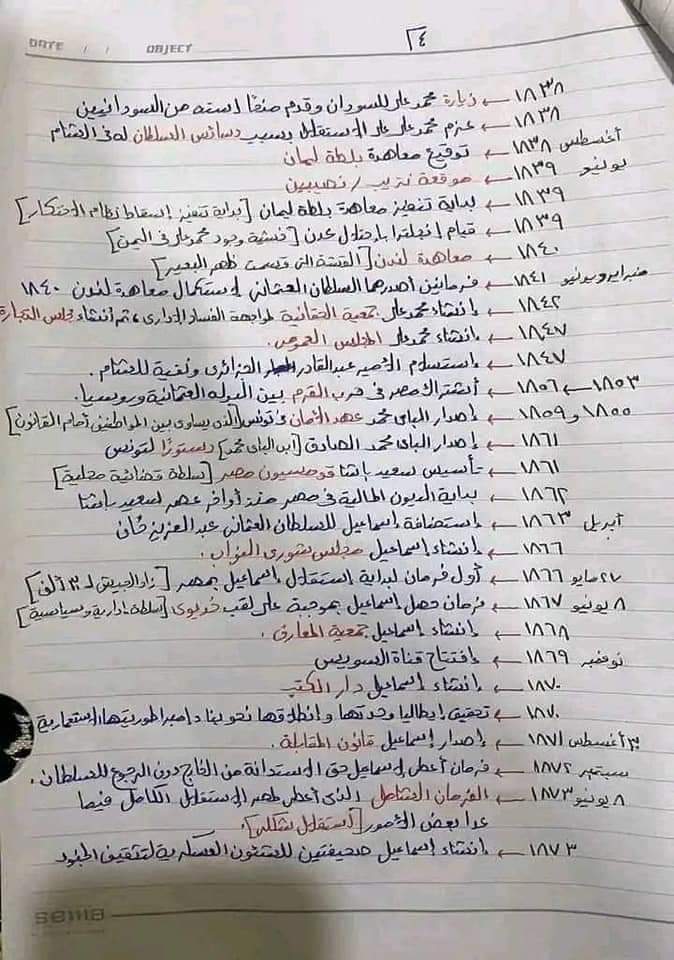 DATE / / OBJECT
٤
١٨٣٨ ← زيارة محمد علي للسودان وقدم صنفًا استه من السودانيين
١٨٣٨ ← عزم محمد علي على الاستقلال بسبب دسائس السلطان له في الشام
أغسطس ١٨٣٨ ← توقيع معاهدة بلطة ليمان
يونيو ١٨٣٩ ← موقعة نزيب / نصيبين
١٨٣٩ ← بداية تنفيذ معاهدة بلطة ليمان [بداية تنفيذ إسقاط نظام الاحتكار]
١٨٣٩ ← قيام إنجلترا باحتلال عدن [خشية وجود محمد علي في اليمن]
١٨٤٠ ← معاهدة لندن [القشة التي قسمت ظهر البعير]
فبراير ويونيو ١٨٤١ ← فرمانين أصدرهما السلطان العثماني لاستكمال معاهدة لندن ١٨٤٠
١٨٤٢ ← إنشاء محمد علي جمعية الحقانية لمواجهة الفساد الإداري، ثم أنشاء مجلس التجارة
١٨٤٧ ← إنشاء محمد علي المجلس العمومي.
١٨٤٧ ← إستسلام الأمير عبدالقادر الجزائري ونفية للشام.
١٨٥٣ ← ١٨٥٦ ← أشتراك مصر في حرب القرم بين الدولة العثمانية وروسيا.
١٨٥٥ و ١٨٥٩ ← إصدار الباي محمد عهد الأمان في تونس [الذي يساوي بين المواطنين أمام القانون]
١٨٦١ ← إصدار الباي محمد الصادق [ابن الباي محمد] دستورًا لتونس
١٨٦١ ← تأسيس سعيد باشا قومسيون مصر [سلطة قضائية محلية]
١٨٦٢ ← بداية الديون المالية في مصر منذ أواخر عهد سعيد باشا
أبريل ١٨٦٣ ← إستضافة إسماعيل للسلطان العثماني عبدالعزيز خان
١٨٦٦ ← إنشاء إسماعيل مجلس شورى النواب.
٢٧ مايو ١٨٦٦ ← أول فرمان لبداية استقلال إسماعيل بمصر [زاد الجيش لـ ٣٠ ألف]
٨ يونيو ١٨٦٧ ← فرمان حصل إسماعيل بموجبة على لقب خديوي [سلطة إدارية وسياسية]
١٨٦٨ ← إنشاء إسماعيل جمعية المعارف.
نوفمبر ١٨٦٩ ← إفتتاح قناة السويس
١٨٧٠ ← إنشاء إسماعيل دار الكتب
١٨٧٠ ← تحقيق إيطاليا وحدتها وإنطلاقها نحو بناء امبراطوريتها الاستعمارية
٣٠ أغسطس ١٨٧١ ← إصدار إسماعيل قانون المقابلة.
سبتمبر ١٨٧٢ ← فرمان أعطى إسماعيل حق الاستدانة من الخارج دون الرجوع للسلطان.
٨ يونيو ١٨٧٣ ← الفرمان الشامل الذي أعطى لمصر الاستقلال الكامل فيما
عدا بعض الأمور [استقلال شكلى].
١٨٧٣ ← إنشاء إسماعيل صحيفتين للشئون العسكرية لتثقيف الجنود
sema